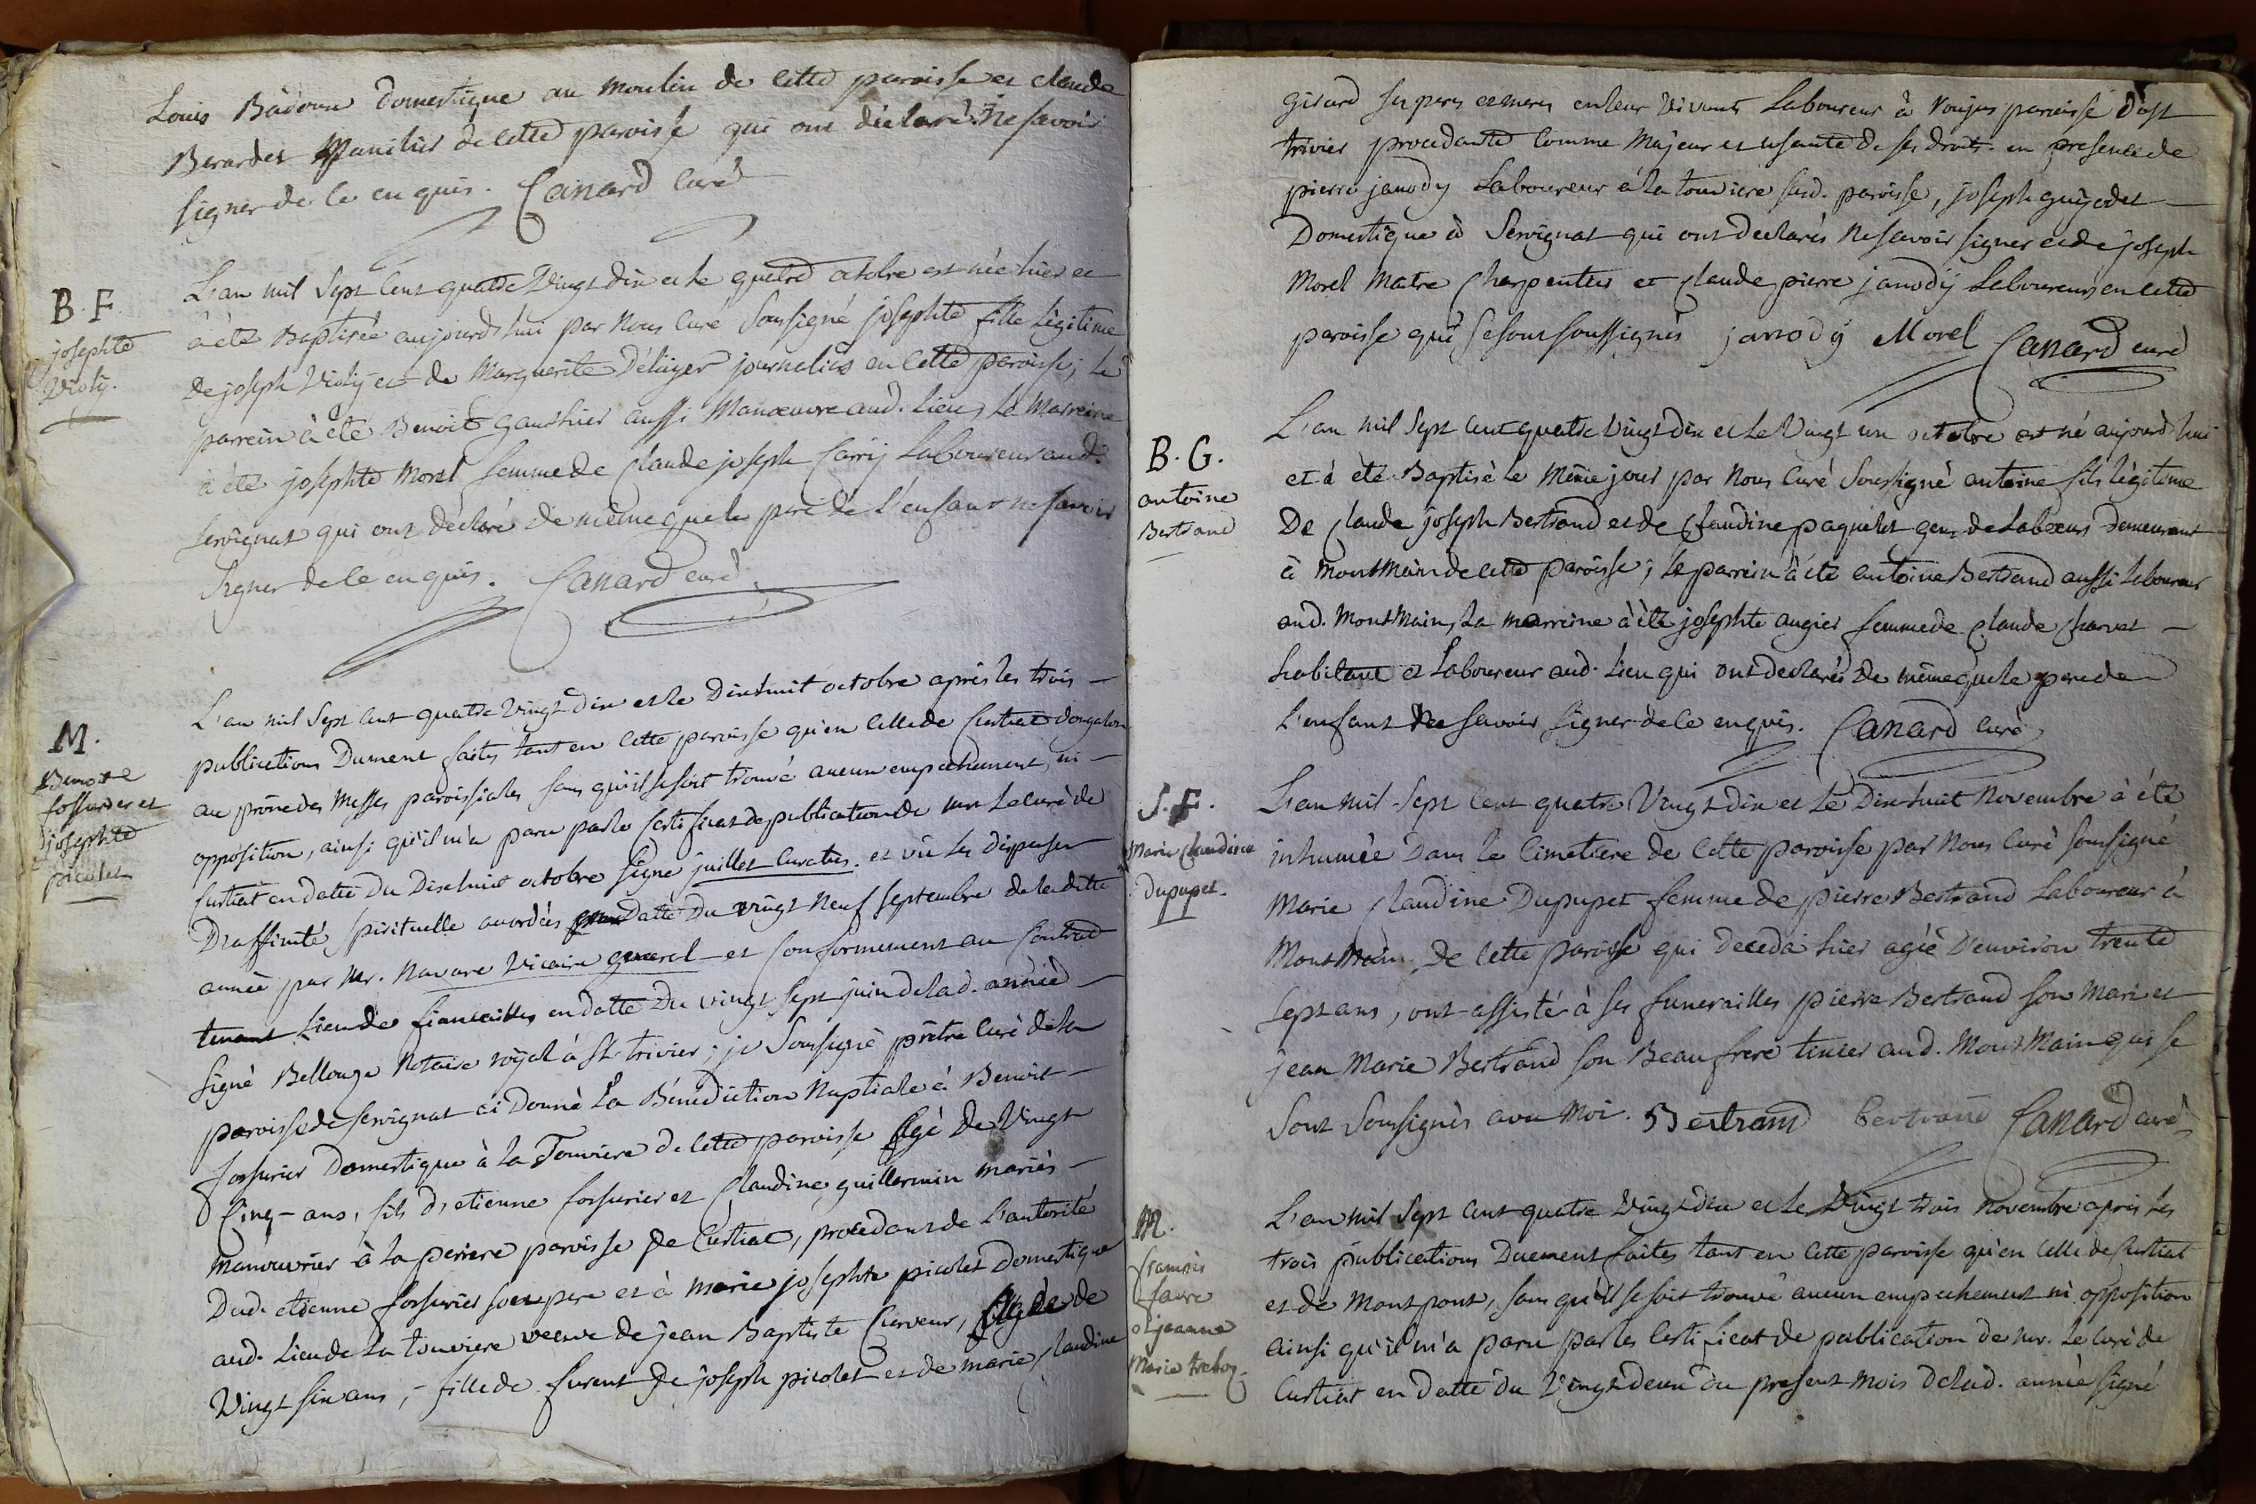 Louis Badoux Domestique au moulin de cette paroisse et claude
Berardet de cette paroisse qui ont déclaré Ne savoir
signer de ce enquis. Canard Curé
B. F.
josephte
Violÿ.
L'an mil Sept Cent quatre Vingt dix et le quatre octobre est née hier et
à été Baptisée aujourd'hui par Nous Curé Soussigné josephte fille Légitime
de joseph Violÿ et de Marguerite Deluyer journalier en cette paroisse; Le
parrein à été Benoit Gauthier aussi Manœuvre aud. Lieu, La Marreine
à été josephte Morel femme de Claude joseph Carrÿ Laboureur aud.
servignat qui ont déclaré de même que le pere de L'enfant ne savoir
Signer de ce enquis. Canard curé
M.
Benoit
fossurier et
josephte
picolet
L'an mil Sept Cent quatre Vingt dix et le Dixhuit octobre après les trois
publications Dument faites tant en cette paroisse qu'en celle de Curtiat dongalon
au prône des Messes paroissiales sans qu'il se soit trouvé aucun empechement, ni
opposition, ainsi qu'il m'a paru par le Certificat de publication de mr Le curé de
Curtiat en datte Du Dixhuit octobre signé juillet Curatus. et vû Les dispenses
D'affinité, spirituelle accordées Datte Du vingt Neuf septembre de la ditte
année par Mr. Navare Vicaire general et Conformement au Contrat
tenant Lieu de fiancailles en datte du vingt sept juin de lad. année
signé Bellouze Notaire roÿal à St. trivier; je Soussigné prêtre Curé de la
paroisse de servignat ai Donné La Bénédiction Nuptiale à Benoit
fossurier Domestique à la Touviere de cette paroisse Agé de Vingt
Cinq ans, fils d'etienne fossurier et Claudine guillermin mariés
manouvrier à la periere paroisse de Curtiat, procedant de L'autorité
Dud. etienne fossurier son pere et à marie josephte picolet domestique
aud. Lieu de La touviere veuve de jean Baptiste Cierveur, Agée de
Vingt six ans, fille de furent De joseph picolet et de marie Claudine
girard ses peres et meres en leur Vivant Laboureur à roujas paroisse d'ast
trivier procedante Comme Majeur et usante de ses droits. en presence de
pierre janody Laboureur à la touviere susd. paroisse, joseph guÿodet
Domestique à Servignat qui ont declarés Ne savoir signer et de joseph
Morel Maitre Charpentier et Claude pierre janodÿ Laboureur en cette
paroisse qui se sont soussignés janodÿ Morel Canard curé
B. G.
antoine
Bertrand
L'an mil Sept Cent quatre Vingt dix et Le Vingt un octobre est né aujourd'hui
et à été Baptisé Le même jour par Nous Curé Soussigné antoine fils légitime
De Claude joseph Bertrand et de Claudine paquelet gens de Labeurs demeurant
à Montmain de cette paroisse; Le parrein à été antoine Bertrand aussi Laboureur
aud. Montmain, La marreine à été josephte augier femme de Claude Charvet
habitant et Laboureur aud. Lieu qui ont declarés De même que le pere de
L'enfant Ne savoir signer de ce enquis. Canard curé
S. F.
Marie Claudine
Dupupet.
L'an mil Sept Cent quatre Vingt dix et Le Dixhuit Novembre à été
inhumée Dans Le Cimetiere de Cette paroisse par Nous Curé Soussigné
Marie Claudine Dupupet femme de pierre Bertrand Laboureur à
Montmain De Cette paroisse qui deceda hier agée D'environ trente
sept ans, ont assisté à ses funerailles pierre Bertrand son Mari et
jean Marie Bertrand son Beau frere tixier aud. Montmain qui se
Sont Soussignés avec Moi. Bertrand bertrand Canard curé
M.
francois
favre
et jeanne
Marie
L'an mil Sept Cent quatre Vingt dix et le Vingt trois Novembre après Les
trois publications Duement faites tant en Cette paroisse qu'en Celle de Curtiat
et de Montpont, sans qu'il se soit trouvé aucun empechement ni opposition
ainsi qu'il m'a paru par les Certificat de publication de mr. Le Curé de
Curtiat en datte du Vingt deux du present Mois de lad. année signé